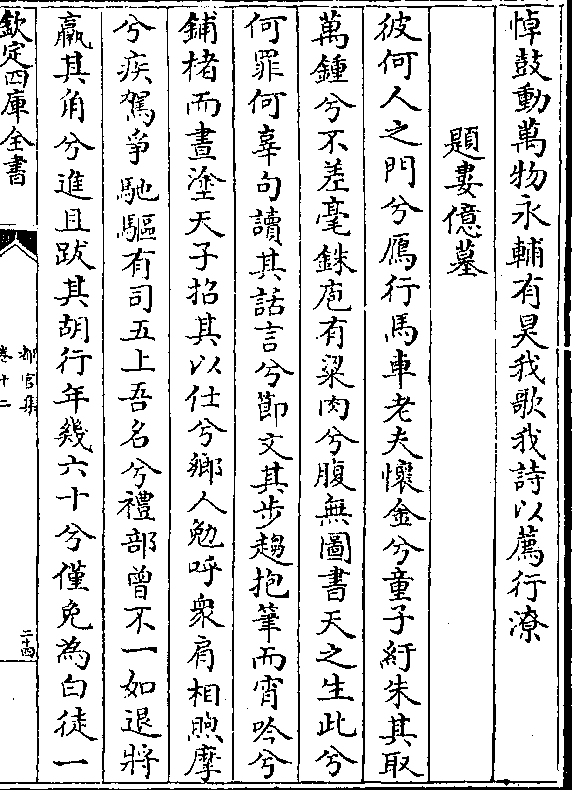 悼鼓動萬物永輔有昊我歌我詩以薦行潦
題婁億墓
彼何人之門兮鴈行馬車老夫懷金兮童子紆朱其取
萬鍾兮不差毫銖庖有粱肉兮腹無圖書天之生此兮
何罪何辜句讀其話言兮節文其步趨抱筆而宵吟兮
鋪楮而晝塗天子招其以仕兮鄉人勉呼衆肩相喣摩
兮疾駕爭馳驅有司五上吾名兮禮部曾不一如退將
羸其角兮進且跋其胡行年幾六十兮僅免為白徒一
欽定四庫全書
都官集
卷十二
二十四